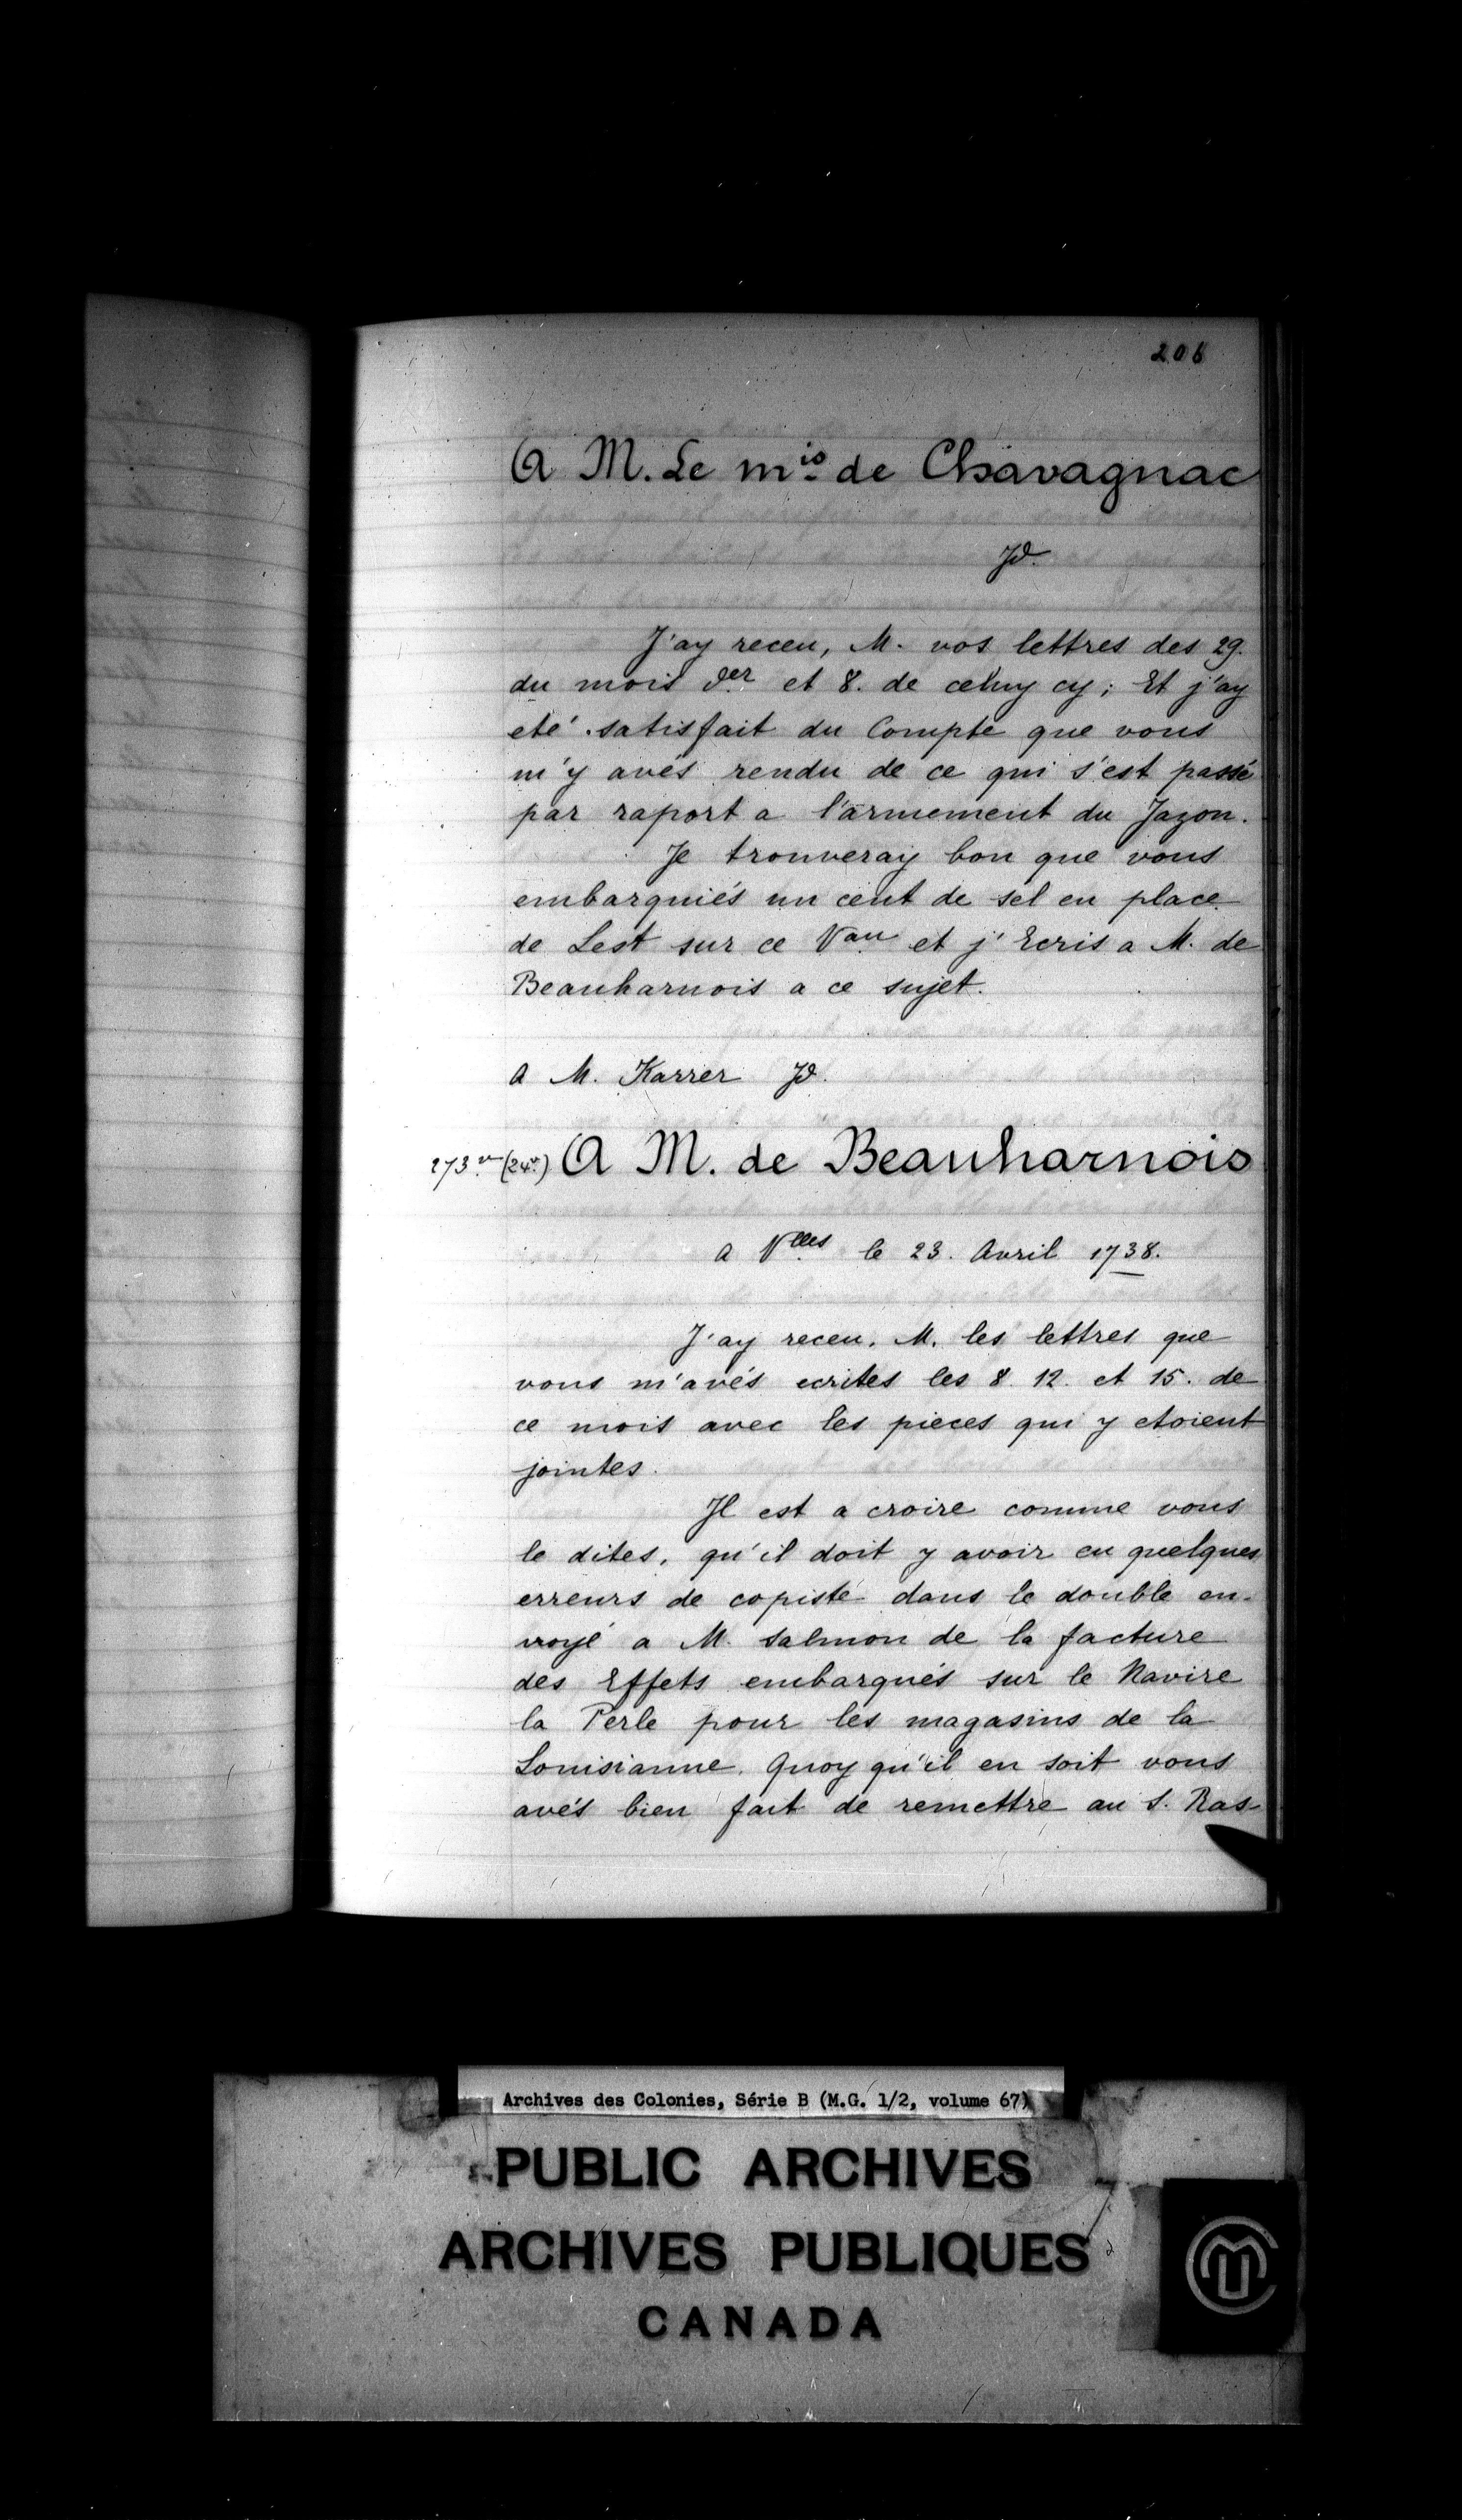 206
A M. Le mis de Chavagnac
Jd.
J'ay receu, M. vos lettres des 29.
du mois der et 8. de celuy cy; Et j'ay
eté satisfait du Compte que vous
m'y avés rendu de ce qui s'est passé
par raport a l'armement du Jazon.
Je trouveray bon que vous
embarquiés un cent de sel en place
de Lest sur ce Vau et j'Ecris a M. de
Beauharnois a ce sujet.
A M. Karrer Jd.
273 v (24v.) A M. de Beauharnois
A Vlles le 23. Avril 1738.
J'ay receu. M. les lettres que
vous m'avés ecrites les 8 12. et 15. de
ce mois avec les pieces qui y etoient
jointes.
Il est a croire comme vous
le dites, qu'il doit y avoir eu quelques
erreurs de copiste dans le double en-
voyé a M. Salmon de la facture
des Effets embarqués sur le Navire
la Perle pour les magasins de la
Louisianne. Quoy qu'il en soit vous
avés bien fait de remettre au S. Ras-
Archives des Colonies, Série B (M.G. 1/2, volume 67)
PUBLIC ARCHIVES
ARCHIVES PUBLIQUES
CANADA